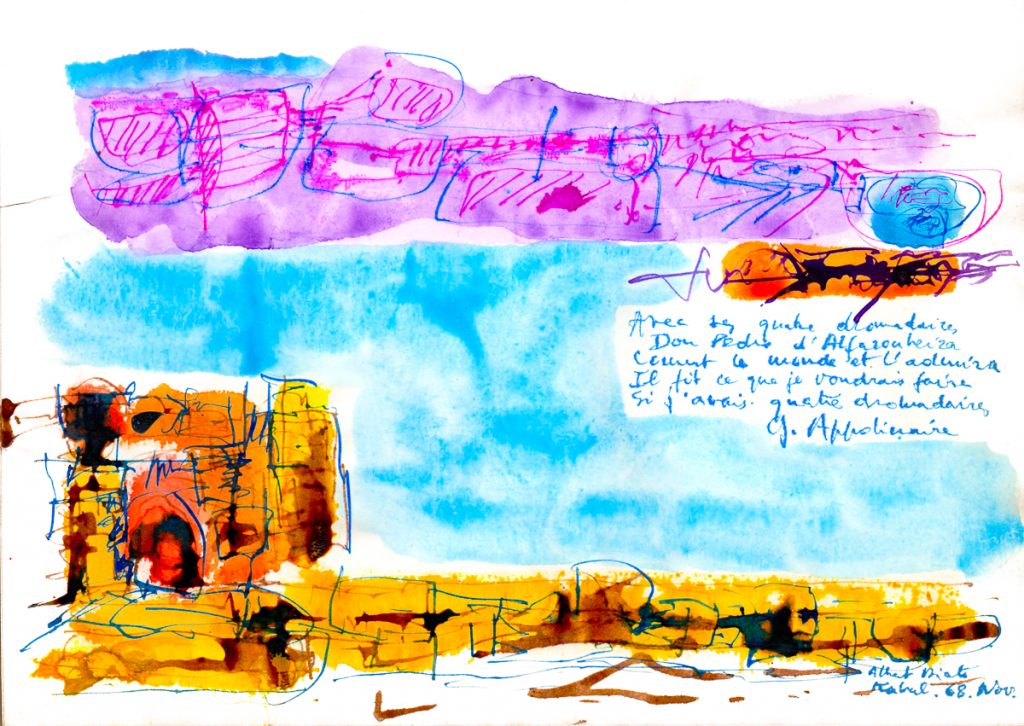 Avec ses quatre dromadaires
Don Pedro d'Alfaroubeira
Courut le monde et l'admira
Il fit ce que je voudrais faire
Si j'avais quatre dromadaires
G. Appolinaire
Albert Diato
Kabul. 68. Nov.